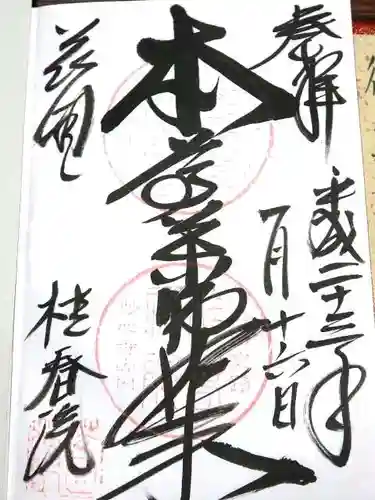 奉拝
平成二十三年
一月十六日
本尊薬師如来
花園
桂春院